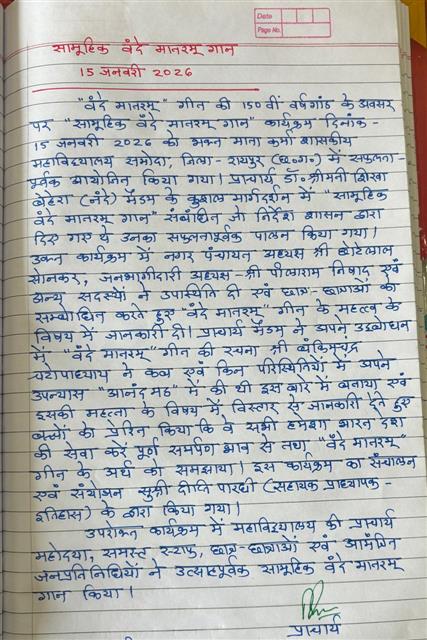 Date
Page No.
सामूहिक वंदे मातरम् गान
15 जनवरी 2026
"वंदे मातरम्" गीत की 150 वीं वर्षगांठ के अवसर
पर "सामूहिक वंदे मातरम् गान" कार्यक्रम दिनांक -
15 जनवरी 2026 को भक्त माता कर्मा शासकीय
महाविद्यालय समोदा, जिला - रायपुर (छ.ग.) में सफलता-
पूर्वक आयोजित किया गया। प्राचार्य डॉ. श्रीमती शिखा
बेहेरा (नंदे) मैडम के कुशल मार्गदर्शन में "सामूहिक
वंदे मातरम् गान" संबंधित जो निर्देश शासन द्वारा
दिए गए थे उनका सफलतापूर्वक पालन किया गया।
उक्त कार्यक्रम में नगर पंचायत अध्यक्ष श्री छोटेलाल
सोनकर, जनभागीदारी अध्यक्ष - श्री पीलाराम निषाद एवं
अन्य सदस्यों ने उपस्थिति दी एवं छात्र-छात्राओं को
सम्बोधित करते हुए "वंदे मातरम्" गीत के महत्व के
विषय में जानकारी दी। प्राचार्य मैडम ने अपने उद्बोधन
में "वंदे मातरम्" गीत की रचना श्री बंकिमचंद्र
चटोपाध्याय ने कब एवं किन परिस्थितियों में अपने
उपन्यास "आनंद मठ" में की थी इस बारे में बताया एवं
इसकी महत्ता के विषय में विस्तार से जानकारी देते हुए
बच्चों को प्रेरित किया कि वे सभी हमेशा भारत देश
की सेवा करें पूर्ण समर्पण भाव से तथा "वंदे मातरम्"
गीत के अर्थ को समझाया। इस कार्यक्रम का संचालन
एवं संयोजन सुश्री दीप्ति पारधी (सहायक प्राध्यापक -
इतिहास) के द्वारा किया गया।
उपरोक्त कार्यक्रम में महाविद्यालय की प्राचार्य
महोदया, समस्त स्टाफ, छात्र-छात्राओं एवं आमंत्रित
जनप्रतिनिधियों ने उत्साहपूर्वक सामूहिक वंदे मातरम्
गान किया।
प्राचार्य